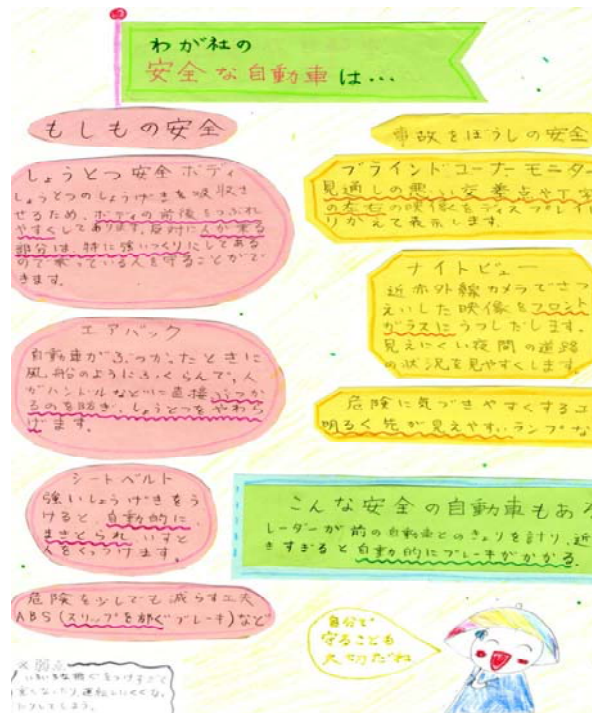 わが社の
安全な自動車は…
もしもの安全
しょうとつ安全ボディ
しょうとつのしょうげきを吸収さ
せるため、ボディの前後をつぶれ
やすくしてあります。反対に人が乗る
部分は、特に強いつくりにしてある
ので乗っている人を守ることがで
きます。
エアバック
自動車がぶつかったときに
風船のようにふくらんで、人
がハンドルなどに直接ぶつか
るのを防ぎ、しょうとつをやわら
げます。
シートベルト
強いしょうげきをう
けると、自動的に
まきとられ、いすと
人をくっつけます。
危険を少しでも減らす工夫
ABS(スリップを防ぐブレーキ)など
事故をぼうしの安全
ブラインドコーナーモニター
見通しの悪い交差点や丁字
の左右の映像をディスプレイに
りかえて表示します。
ナイトビュー
近赤外線カメラでさつ
えいした映像をフロント
ガラスにうつしだします。
見えにくい夜間の道路
の状況を見やすくします。
危険に気づきやすくする工
明るく先が見えやすいランプな
こんな安全の自動車もある
レーダーが前の自動車とのきょりを計り、近
きすぎると自動的にブレーキがかかる。
自分で
守ることも
大切だね
弱点